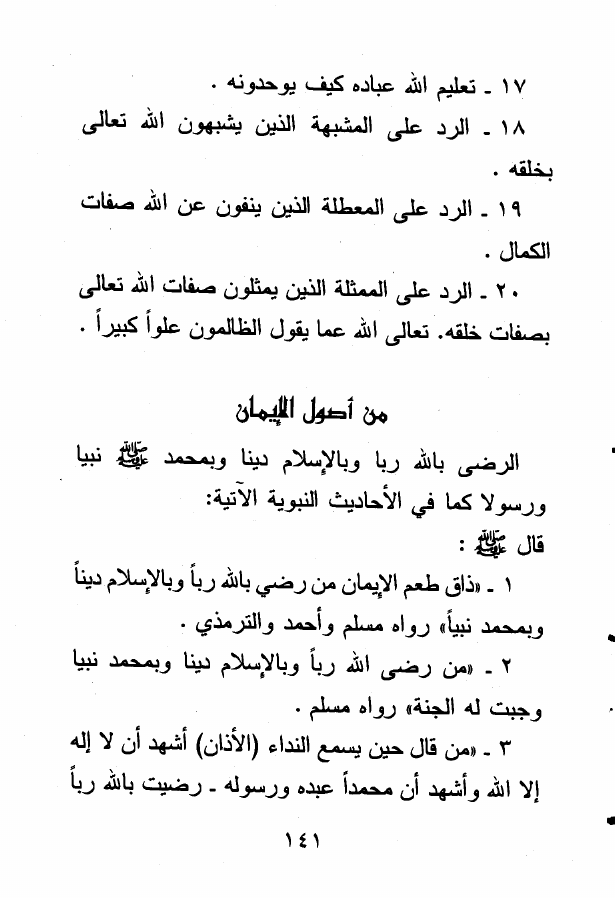 ١٧ ـ تعليم الله عباده كيف يوحدونه .
١٨ ـ الرد على المشبهة الذين يشبهون الله تعالى
بخلقه .
١٩ ـ الرد على المعطلة الذين ينفون عن الله صفات
الكمال .
٢٠ ـ الرد على الممثلة الذين يمثلون صفات الله تعالى
بصفات خلقه. تعالى الله عما يقول الظالمون علواً كبيراً .
من أصول الإيمان
الرضى بالله ربا وبالإسلام دينا وبمحمد ﷺ نبيا
ورسولا كما في الأحاديث النبوية الآتية:
قال ﷺ :
١ ـ «ذاق طعم الإيمان من رضي بالله رباً وبالإسلام ديناً
وبمحمد نبياً» رواه مسلم وأحمد والترمذي .
٢ ـ «من رضى الله رباً وبالإسلام دينا وبمحمد نبيا
وجبت له الجنة» رواه مسلم .
٣ ـ «من قال حين يسمع النداء (الأذان) أشهد أن لا إله
إلا الله وأشهد أن محمداً عبده ورسوله ـ رضيت بالله رباً
١٤١